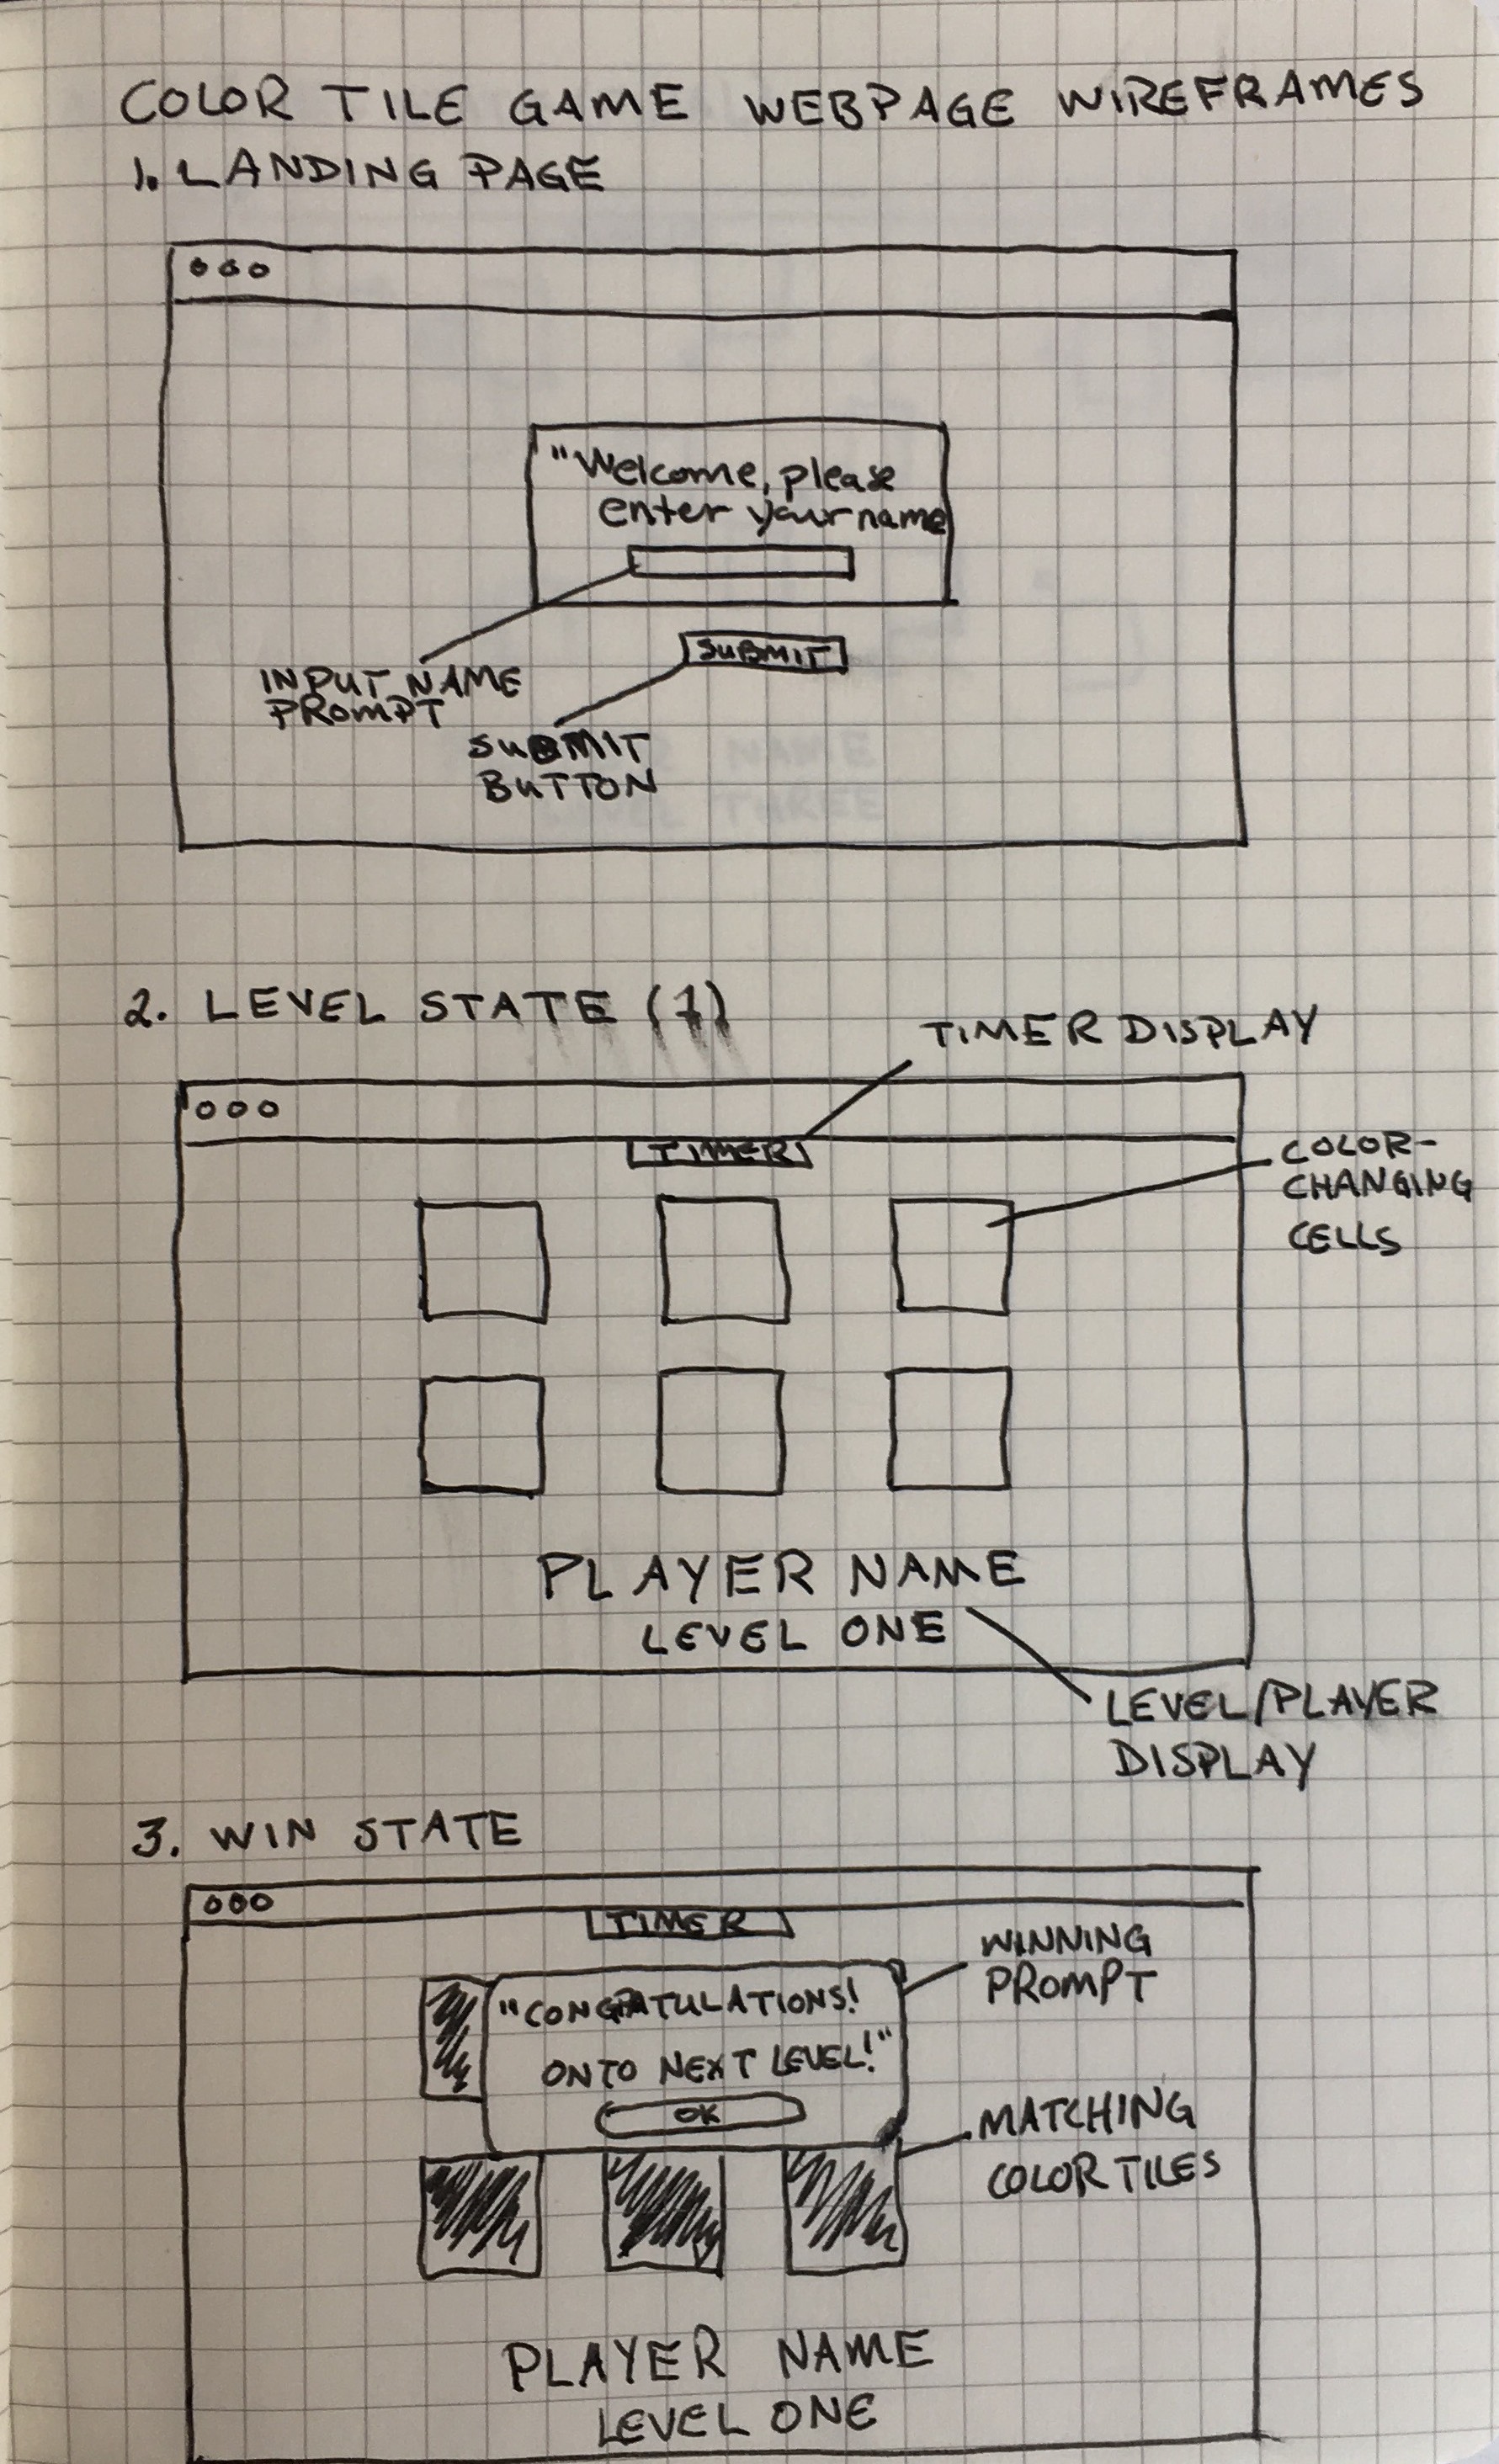 COLOR TILE GAME WEBPAGE WIREFRAMES
1. LANDING PAGE
"Welcome, please
enter your name
INPUT NAME
PROMPT
SUBMIT
SUBMIT
BUTTON
NAME
THREE
2. LEVEL STATE (1)
TIMER DISPLAY
TIMER
COLOR-
CHANGING
CELLS
PLAYER NAME
LEVEL ONE
LEVEL/PLAYER
DISPLAY
3. WIN STATE
TIMER
WINNING
PROMPT
"CONGRATULATIONS!
ONTO NEXT LEVEL!"
OK
MATCHING
COLOR TILES
PLAYER NAME
LEVEL ONE